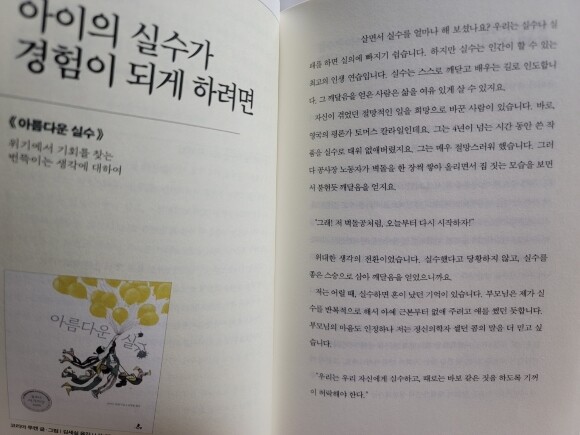 아이의 실수가
경험이 되게 하려면
《아름다운 실수》
위기에서 기회를 찾는
번뜩이는 생각에 대하여
아름다운
실수
살면서 실수를 얼마나 해 보셨나요? 우리는 실수나 실
패를 하면 실의에 빠지기 쉽습니다. 하지만 실수는 인간이 할 수 있는
최고의 인생 연습입니다. 실수는 스스로 깨닫고 배우는 길로 인도합니
다. 그 깨달음을 얻은 사람은 삶을 여유 있게 살 수 있지요.
자신이 겪었던 절망적인 일을 희망으로 바꾼 사람이 있습니다. 바로,
영국의 평론가 토머스 칼라일인데요. 그는 4년이 넘는 시간 동안 쓴 작
품을 실수로 태워 없애버렸지요. 그는 매우 절망스러워 했습니다. 그러
다 공사장 노동자가 벽돌을 한 장씩 쌓아 올리면서 집 짓는 모습을 보면
서 문현듯 깨달음을 얻지요.
'그래! 저 벽돌공처럼, 오늘부터 다시 시작하자!'
위대한 생각의 전환이었습니다. 실수했다고 당황하지 않고, 실수를
좋은 스승으로 삼아 깨달음을 얻었으니까요.
저는 어릴 때, 실수하면 혼이 났던 기억이 있습니다. 부모님은 제가 실수
를 반복적으로 해서 아예 근본부터 없애 주려고 애를 썼던 듯합니다.
부모님의 마음도 인정하나 저는 정신의학자 셸던 콥의 말을 더 믿고 싶
습니다.
"우리는 우리 자신에게 실수하고, 때로는 바보 같은 짓을 하도록 기꺼
이 허락해야 한다."